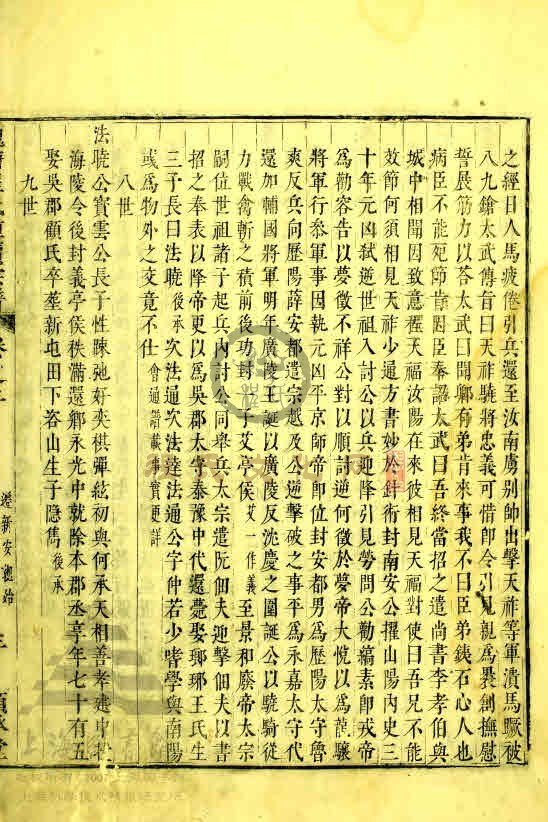 之經日人馬疲倦引兵還至汝南虜别帥出擊天祚等軍潰馬蹶被
八九鎗太武傳旨曰天祚驍將忠義可惜卽令引見親爲裹創撫慰
誓展筋力以答太武曰聞卿有弟肯來事我不曰臣弟鐵石心人也
病臣不能死節肯因臣奉詔太武曰吾終當招之遣尚書李孝伯與
城中相聞因致意程天福汝陽在來彼相見天福對使曰吾兄不能
效節何須相見天祚少通方書妙於針術封南安公擢山陽内史三
十年元凶弑逆世祖入討公以兵迎降引見勞問公勸縞素卽戎帝
爲動容告以夢徵不祥公對以順討逆何徵於夢帝大悅以爲龍驤
將軍行叅軍事因執元凶平京師帝卽位封安都男爲歷陽太守魯
爽反兵向歷陽薛安都遣宗越及公逆擊破之事平爲永嘉太守代
還加輔國將軍明年廣陵王誕以廣陵反沈慶之圍誕公以驍騎從
力戰禽斬之積前後功封子艾亭侯艾一作義至景和廢帝太宗
嗣位世祖諸子起兵内討公同舉兵太宗遣阮佃夫迎擊佃夫以書
招之奉表以降帝更以爲吳郡太守泰豫中代還薨娶瑯琊王氏生
三子長曰法曉後承次法通次法逹法通公字仲若少嗜學與南陽
或爲物外之交竟不仕會通譜載事實更詳
八世
法曉公寳雲公長子性踈弛好奕棋彈絃初與何承天相善孝建中補
海陵令後封義亭侯秩滿還鄉永光中就除本郡丞享年七十有五
娶吳郡顧氏卒塟新屯田下峇山生子隱雋後承
九世
遷新安